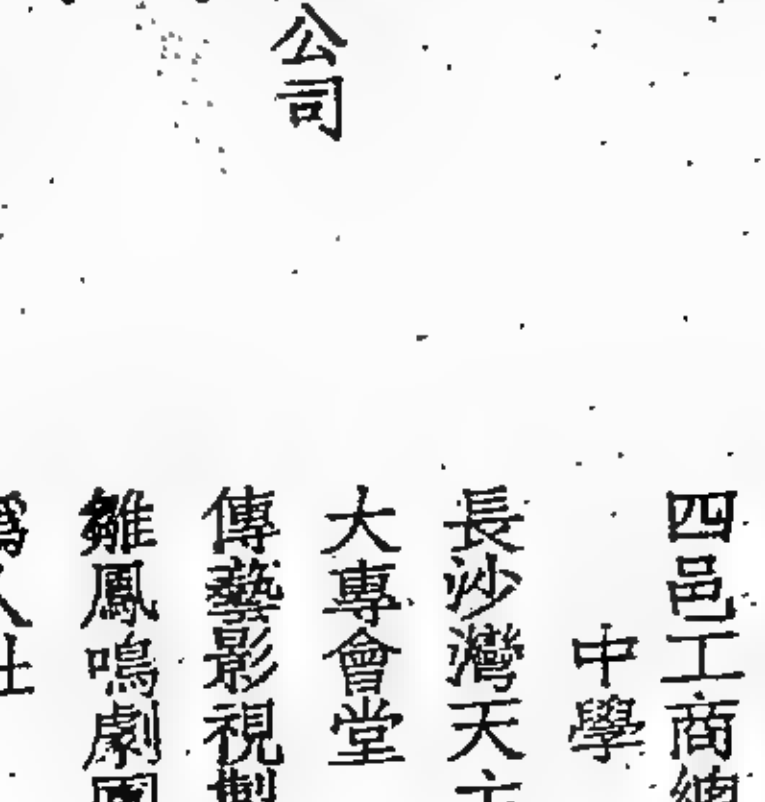 四邑工商總
中學
長沙灣天主
大專會堂
公司
傳藝影視製
雛鳳鳴劇團